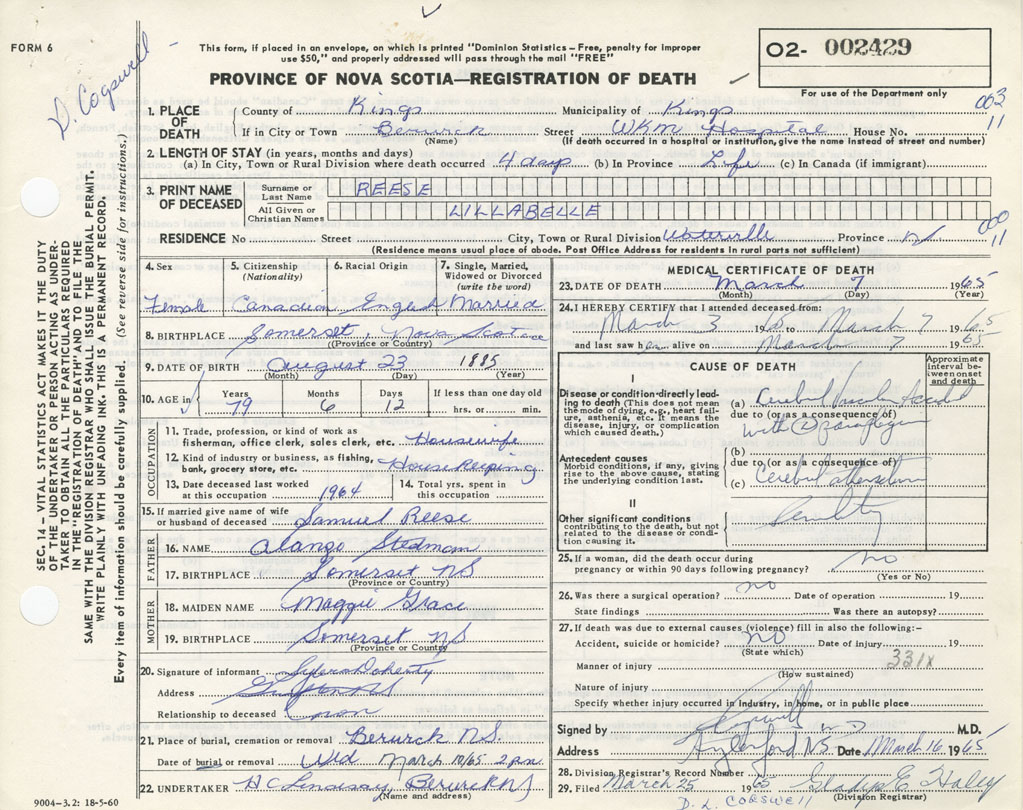 FORM 6
D. Cogswell
This form, if placed in an envelope, on which is printed "Dominion Statistics – Free, penalty for improper
use $50," and properly addressed will pass through the mail "FREE"
PROVINCE OF NOVA SCOTIA—REGISTRATION OF DEATH
O2- 002429
For use of the Department only
SEC. 14 – VITAL STATISTICS ACT MAKES IT THE DUTY
OF THE UNDERTAKER OR PERSON ACTING AS UNDER-
TAKER TO OBTAIN ALL THE PARTICULARS REQUIRED
IN THE "REGISTRATION OF DEATH" AND TO FILE THE
SAME WITH THE DIVISION REGISTRAR WHO SHALL ISSUE THE BURIAL PERMIT.
WRITE PLAINLY WITH UNFADING INK. THIS IS A PERMANENT RECORD.
Every item of information should be carefully supplied. (See reverse side for instructions.)
1. PLACE OF DEATH
County of Kings Municipality of Kings 003
11
If in City or Town Berwick Street WKM Hospital House No.
(Name) (If death occurred in a hospital or institution, give the name instead of street and number)
2. LENGTH OF STAY (in years, months and days)
(a) In City, Town or Rural Division where death occurred 4 days (b) In Province Life (c) In Canada (if immigrant)
3. PRINT NAME OF DECEASED
Surname or Last Name REESE
All Given or Christian Names LILLABELLE
000
11
RESIDENCE No Street City, Town or Rural Division Waterville Province NS
(Residence means usual place of abode. Post Office Address for residents in rural parts not sufficient)
4. Sex 5. Citizenship (Nationality) 6. Racial Origin 7. Single, Married, Widowed or Divorced (write the word)
Female Canadian English Married
8. BIRTHPLACE Somerset, Nova Scotia
(Province or Country)
9. DATE OF BIRTH August 23 1885
(Month) (Day) (Year)
10. AGE in Years Months Days If less than one day old
79 6 12 hrs. or min.
OCCUPATION
11. Trade, profession, or kind of work as
fisherman, office clerk, sales clerk, etc. Housewife
12. Kind of industry or business, as fishing,
bank, grocery store, etc. House Keeping
13. Date deceased last worked at this occupation 1964
14. Total yrs. spent in this occupation
15. If married give name of wife
or husband of deceased Samuel Reese
FATHER
16. NAME Alango Stedman
17. BIRTHPLACE Somerset NS
(Province or Country)
MOTHER
18. MAIDEN NAME Maggie Grace
19. BIRTHPLACE Somerset NS
(Province or Country)
20. Signature of informant Doherty
Address
Relationship to deceased
21. Place of burial, cremation or removal Berwick NS.
Date of burial or removal Wed March 10/65 2 pm
22. UNDERTAKER H C Lindsay Berwick NS
(Name and address)
9004–3.2: 18-5-60
MEDICAL CERTIFICATE OF DEATH
23. DATE OF DEATH March 7 1965
(Month) (Day) (Year)
24. I HEREBY CERTIFY that I attended deceased from:
March 3 1965 to March 7 1965
and last saw her alive on March 7 1965
CAUSE OF DEATH
Approximate interval between onset and death
I
Disease or condition directly lead-
ing to death (This does not mean
the mode of dying, e.g., heart fail-
ure, asthenia, etc. It means the
disease, injury, or complication
which caused death.)
(a) Cerebral Vascular Accident
due to (or as a consequence of)
with
Antecedent causes
Morbid conditions, if any, giving
rise to the above cause, stating
the underlying condition last.
(b)
due to (or as a consequence of)
(c) Cerebral
II
Other significant conditions
contributing to the death, but not
related to the disease or condi-
tion causing it.
Senility
25. If a woman, did the death occur during
pregnancy or within 90 days following pregnancy? no
(Yes or No)
26. Was there a surgical operation? no Date of operation 19
State findings Was there an autopsy?
27. If death was due to external causes (violence) fill in also the following:–
Accident, suicide or homicide? NO Date of injury 19
(State which)
331x
Manner of injury
(How sustained)
Nature of injury
Specify whether injury occurred in industry, in home, or in public place
Signed by Cogswell MD M.D.
Address NS Date March 16 1965
28. Division Registrar's Record Number
29. Filed March 25 1965 Gladys E Haley
(Division Registrar)
D. L. COGSWELL